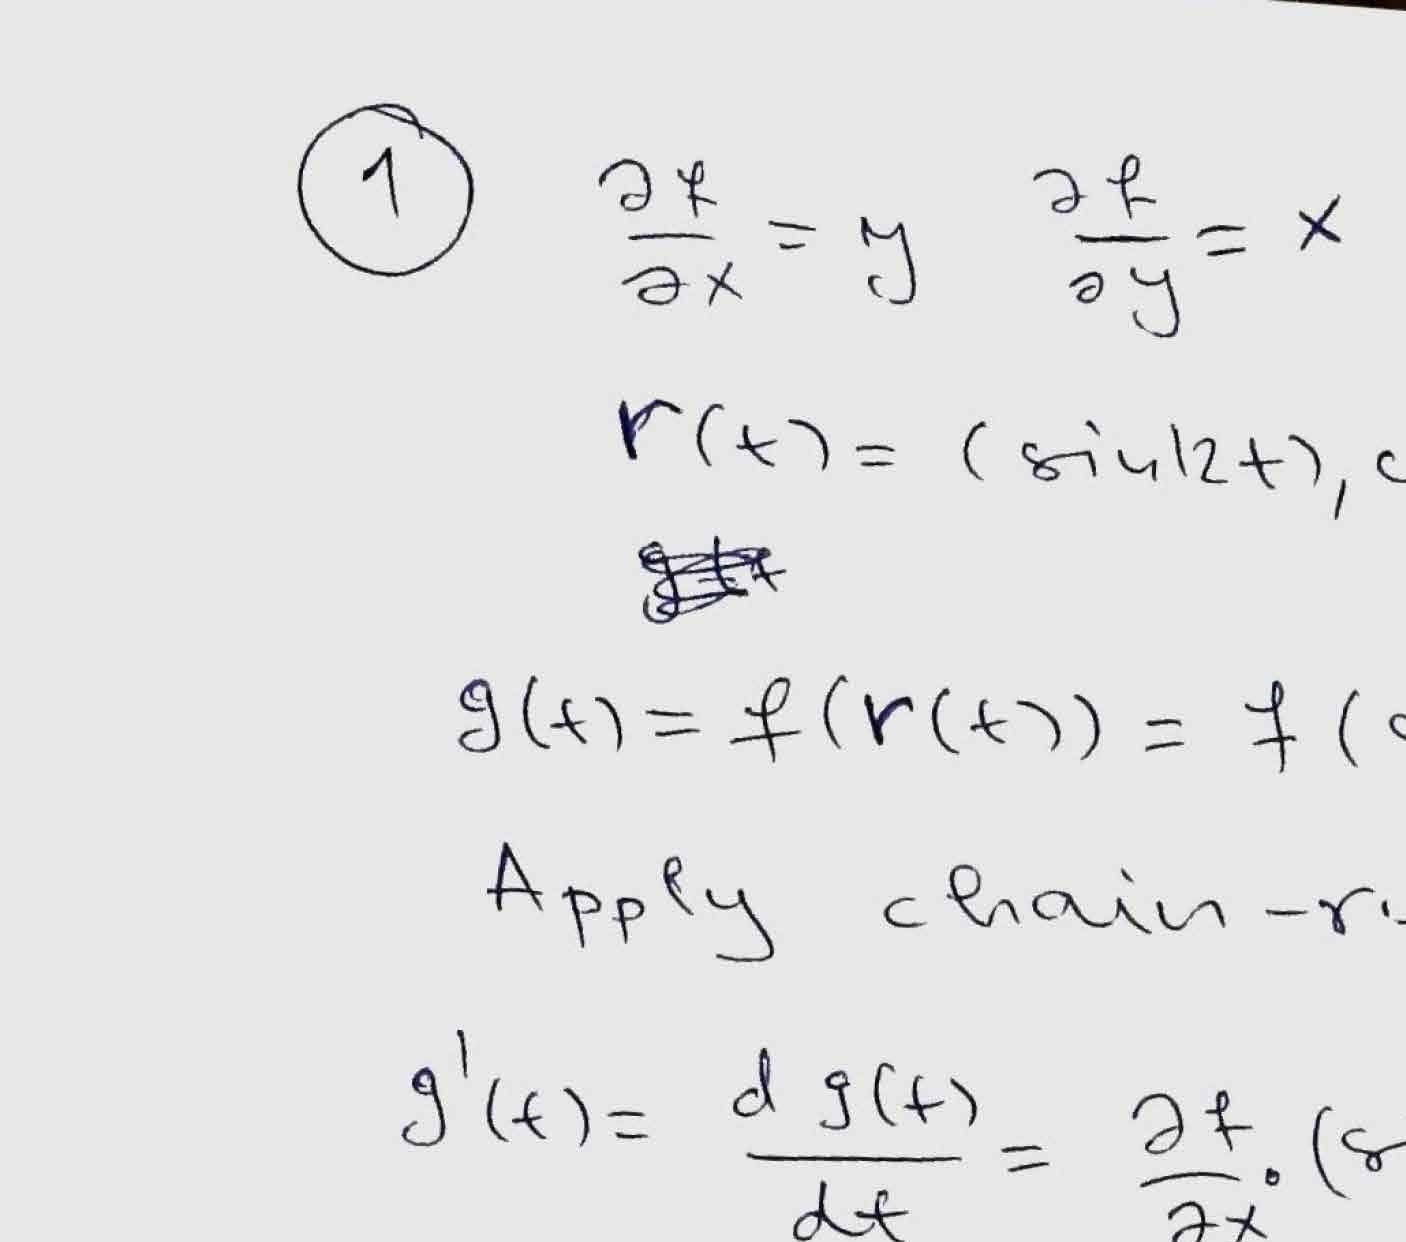 ① ∂f/∂x = y ∂f/∂y = x
r(t) = (sin(2t), c
g(t) = f(r(t)) = f(
Apply chain-ru
g'(t) = d g(t)/dt = ∂f/∂x · (s